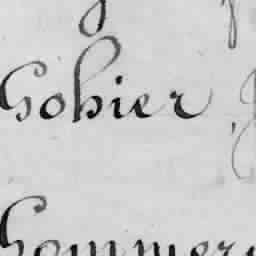 Gohier
Gommer